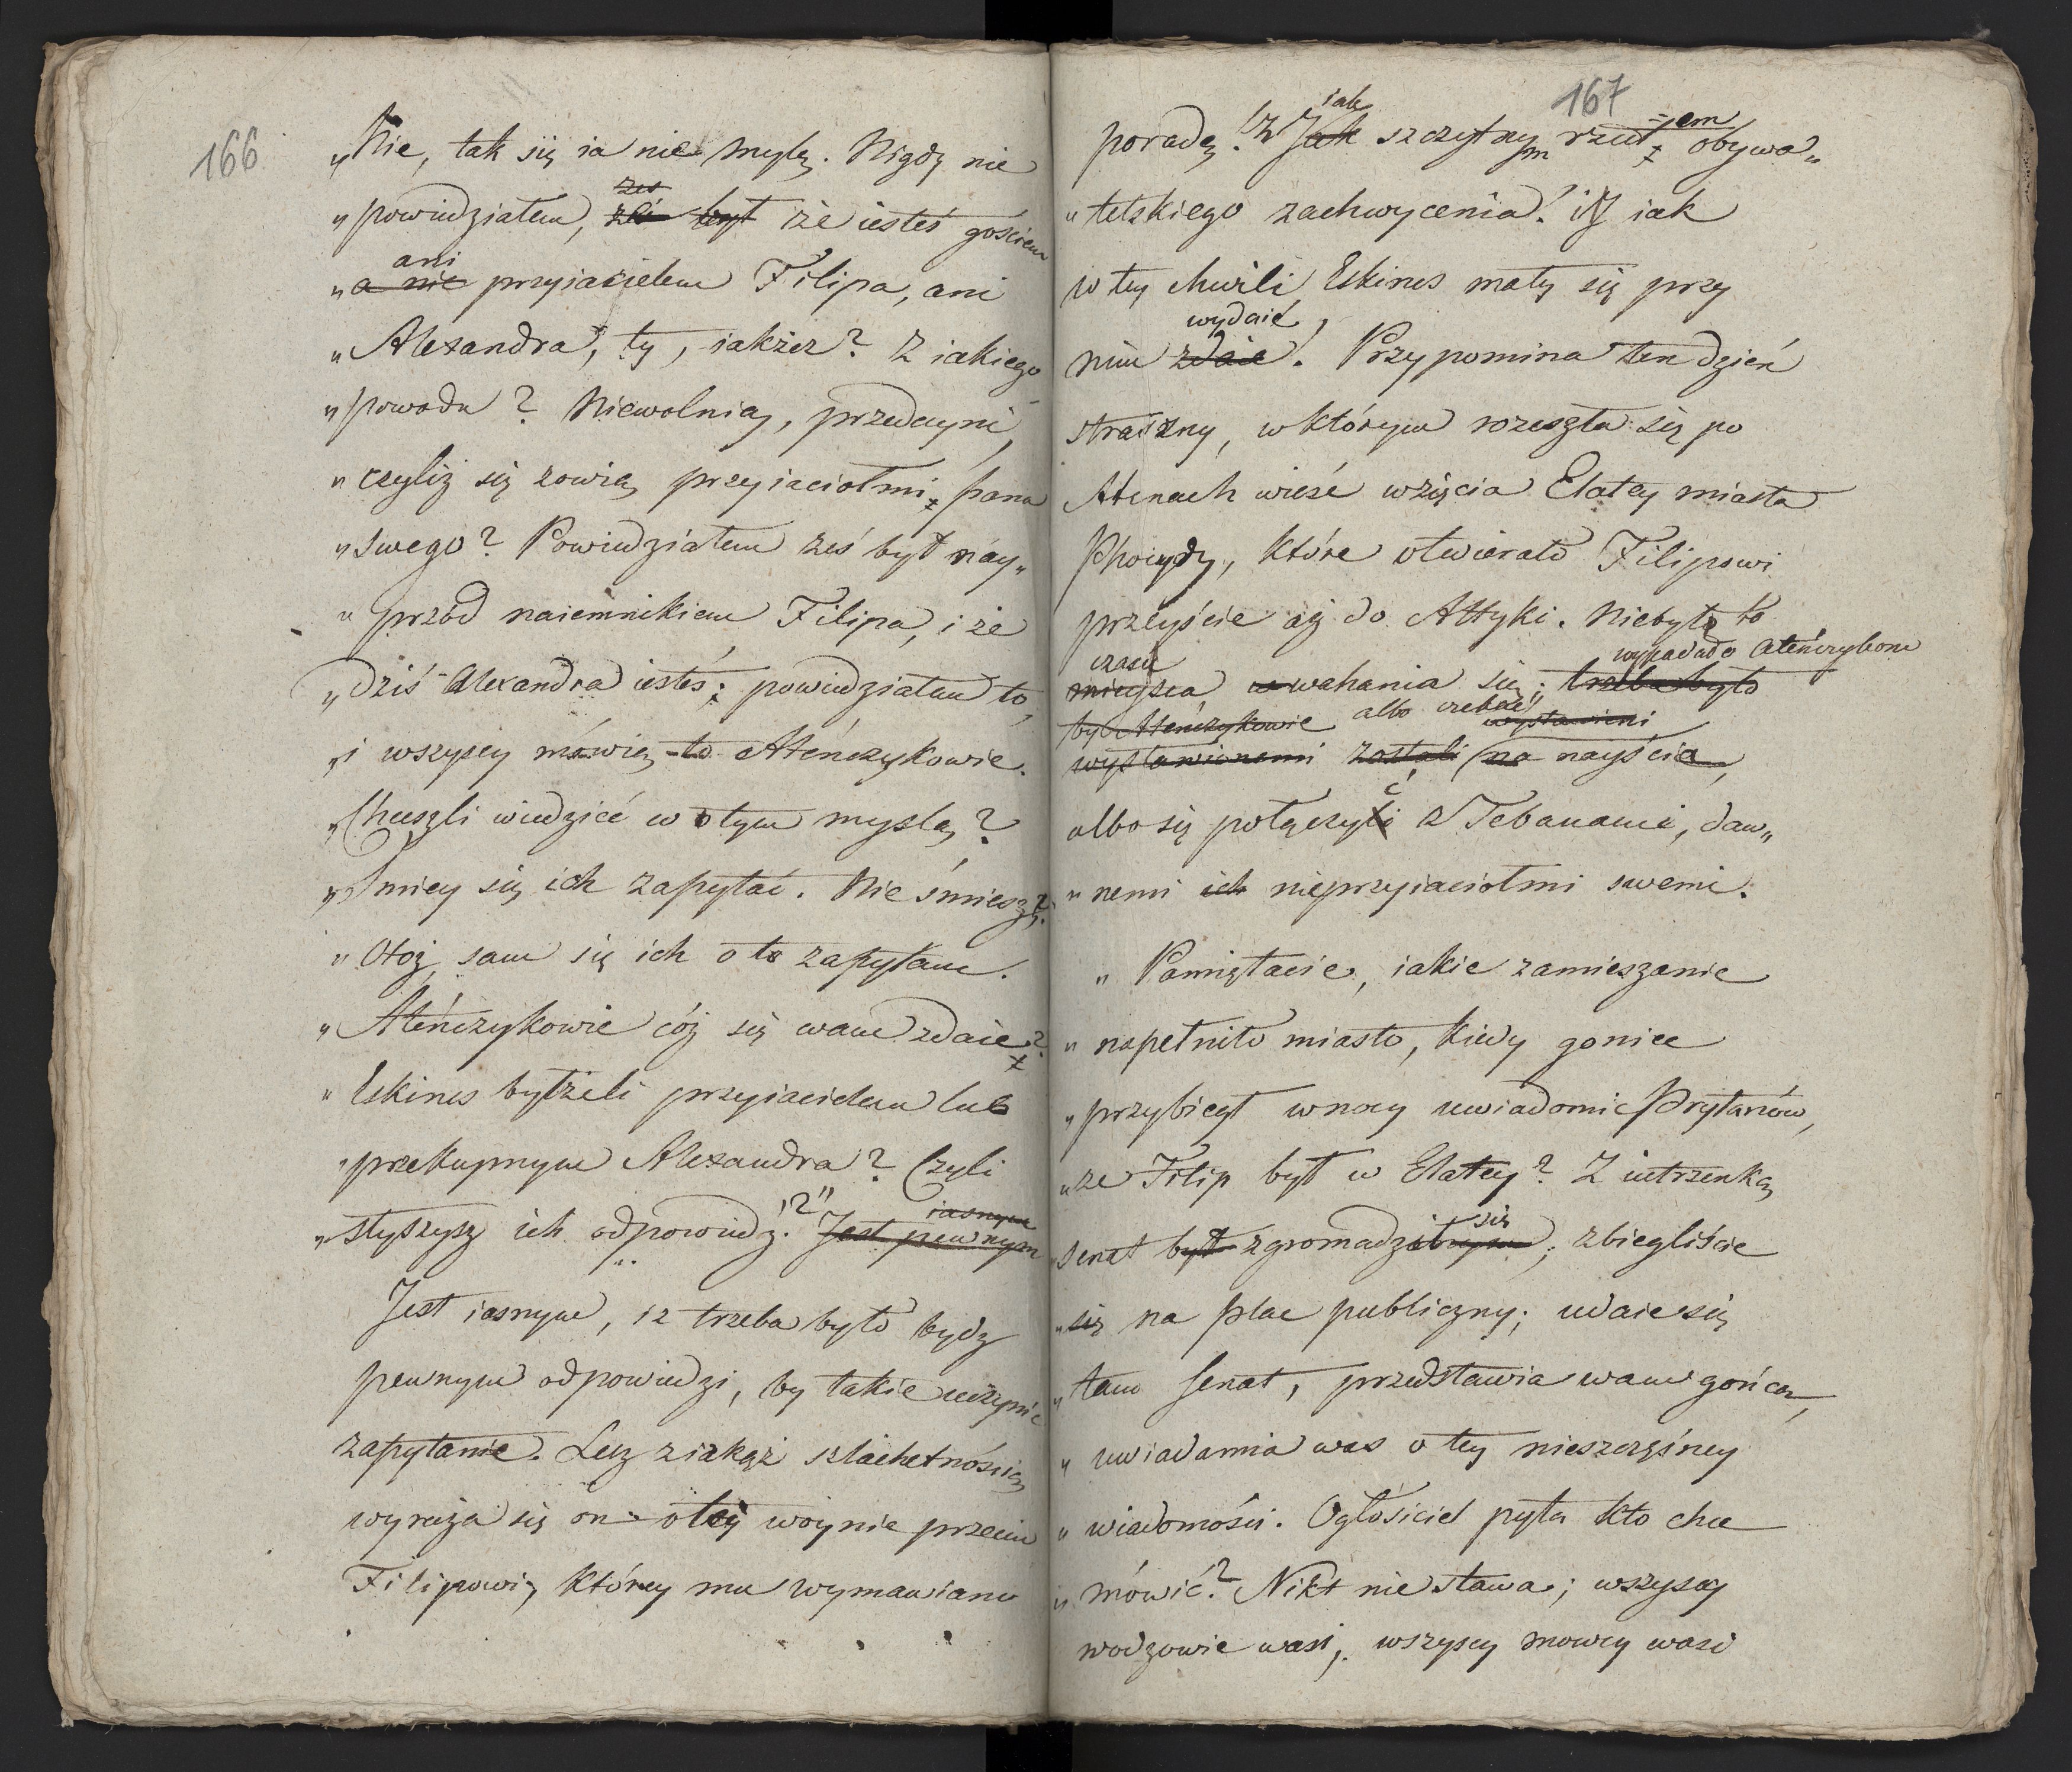 166
„Nie, tak się ia nie mylę. Nigdy nie
żeś
„powiedziałem, żeś był iże iesteś gościem
ani
„a nie przyiacielem Filipa, ani
„Alexandra, ty, iakżez? Z iakiego
„powodu? Niewolnicy, przedayni,
„czyliż się zowią przyiaciołmi pana
„swego? Powiedziałem żeś był nay„
„przód naiemnikiem Filipa, i że
„dziś Alexandra iesteś; powiedziałem to,
„i wszyscy mówią to Ateńczykowie.
„Chceszli wiedzieć co o tym myslą?
„Smiey się ich zapytać. Nie śmiesz?
„Otoż sam się ich o to zapytam.
„Ateńczykowie cóż się wam zdaie?
„Eskines byłżeli przyiacielem lub
„przekupnym Alexandra? Czyli
iasnym
„słyszysz ich odpowiedź?" Jest pewnym
Jest iasnym, iz trzeba było bydź
pewnym odpowiedzi, by takie uczynić
zapytanie. Lecz z iakąż szlachetnością
wyraża się on o tey woynie przeciw
Filipowi, którey mu wymawiano
167
iak jem
poradę! Z Jak szczytnym rzut obywa„
„telskiego zachwycenia! i iak
w tey chwili Eskines mały się przy
wydaie,
nim zdaie! Przypomina ten dzień
straszny, w którym rozeszła się po
Atenach wieść wzięcia Elatey miasta
Phocydy, które otwierało Filipowi
przeyście aż do Attyki. Niebyło to
czasu wypadało Ateńczykom
mieysca w wahania się; trzeba było
by Ateńczykowie albo czekać wystawieni
wystawionemi zostali na nayścia,
albo się połączyć z Tebanami, daw„
„nemi ich nieprzyiaciołmi swemi.
„Pamiętacie, iakie zamieszanie
„napełniło miasto, kiedy goniec
„przybiegł w nocy uwiadomić Prytanów,
„ze Filip był w Elatey? Z iutrzenką
się
„senat był zgromadził; zbiegliście
„się na plac publiczny; udaie się
„tam Senat, przedstawia wam gońca,
„uwiadamia was o tey nieszczęśney
„wiadomości. Ogłosiciel pyta kto chce
„mówić? Nikt nie stawa; wszyscy
wodzowie wasi, wszyscy mowcy wasi